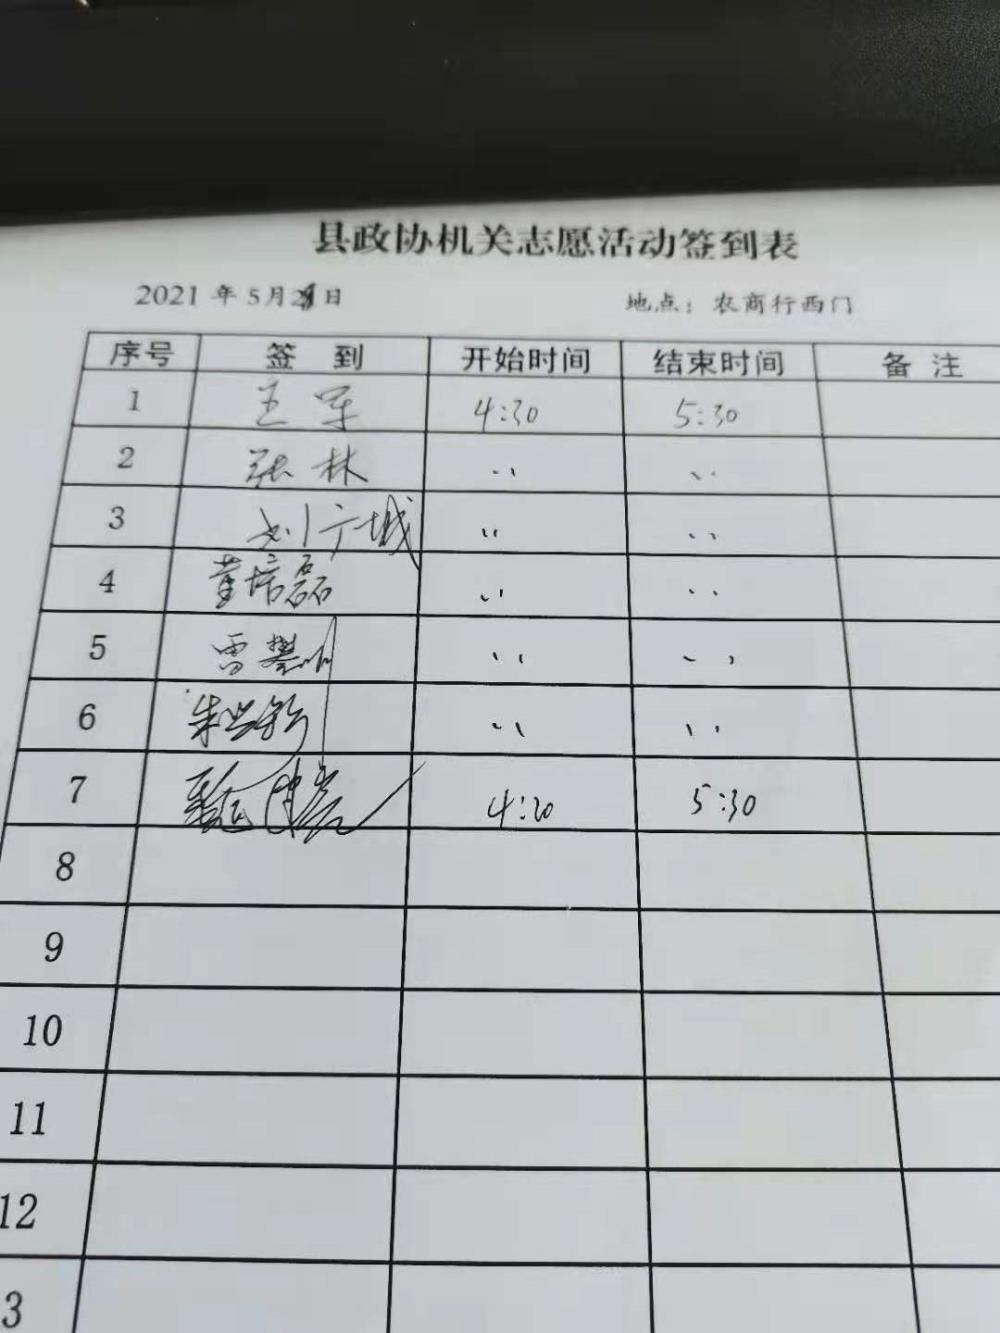 县政协机关志愿活动签到表
2021 年 5月2日 地点：农商行西门
序号 签 到 开始时间 结束时间 备 注
1 王军 4:30 5:30
2 张林 〃 〃
3 刘广城 〃 〃
4 董培磊 〃 〃
5 雷 〃 〃
6 朱 〃 〃
7 4:30 5:30
8
9
10
11
12
3